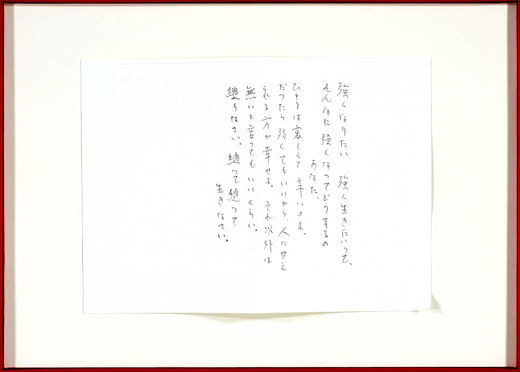 強くなりたい 強く生きたいって、
そんなに強くなってどうするの
あなた。
ひとりは寂しくて辛いのよ。
だったら弱くてもいいから、人に甘え
れる方が幸せよ。それ以外は
無いと言ってもいいくらい。
縋りなさい。縋って縋って
生きなさい。